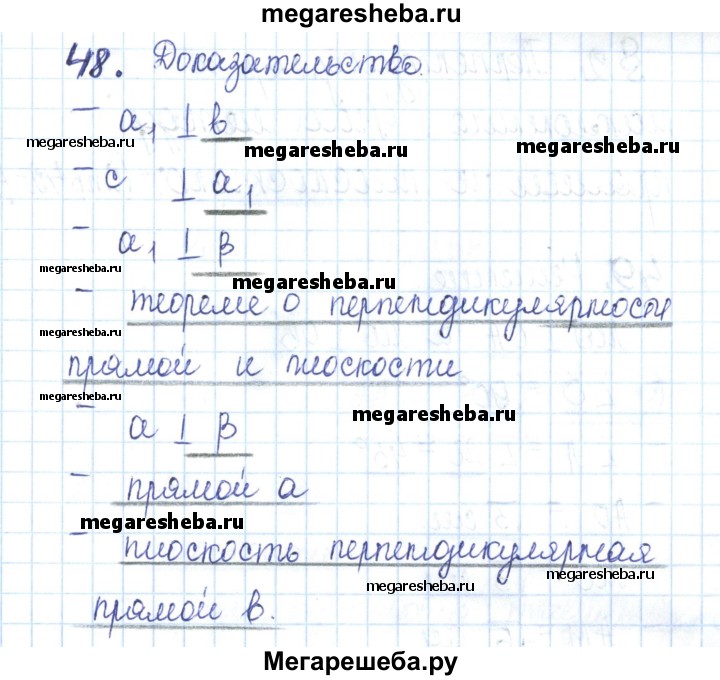 megaresheba.ru
48. Доказательство.
- a₁ ⊥ в
megaresheba.ru
megaresheba.ru
megaresheba.ru
- c ⊥ a₁
- a₁ ⊥ β
megaresheba.ru
megaresheba.ru
- теореме о перпендикулярности
megaresheba.ru
megaresheba.ru
прямой и плоскости
megaresheba.ru
megaresheba.ru
- a ⊥ β
- прямой a
megaresheba.ru
- плоскость перпендикулярная
megaresheba.ru
megaresheba.ru
прямой в.
Мегарешеба.ру